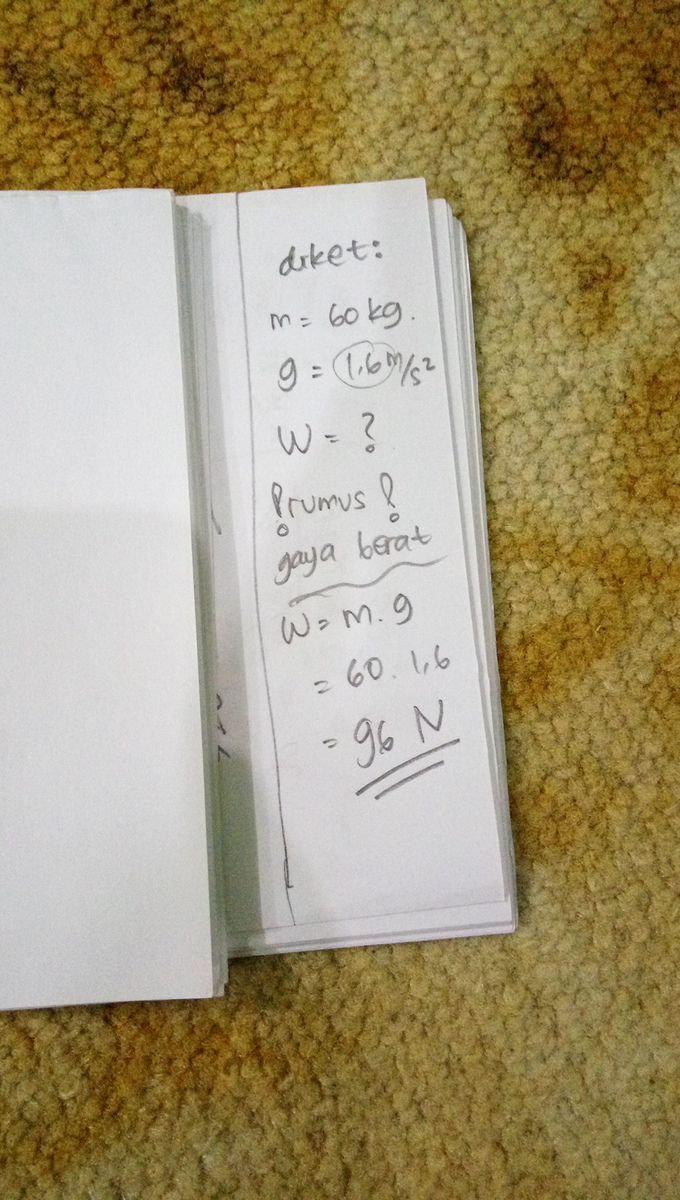 diket:
m = 60 kg.
g = 1,6 m/s²
W = ?
!rumus!
gaya berat
W = m . g
= 60 . 1,6
= 96 N